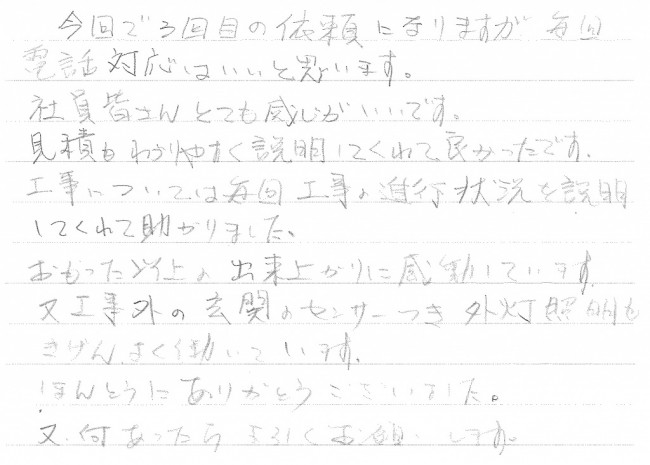 今回で3回目の依頼になりますが 毎回
電話対応はいいと思います。
社員皆さんとても感じがいいです。
見積もわかりやすく説明してくれて良かったです。
工事については毎回工事の進行状況を説明
してくれて助かりました。
おもった以上の出来上がりに感動しています。
又工事外の玄関のセンサーつき外灯照明も
きげんよく働いています。
ほんとうにありがとうございました。
又、何あったら よろしくお願いします。